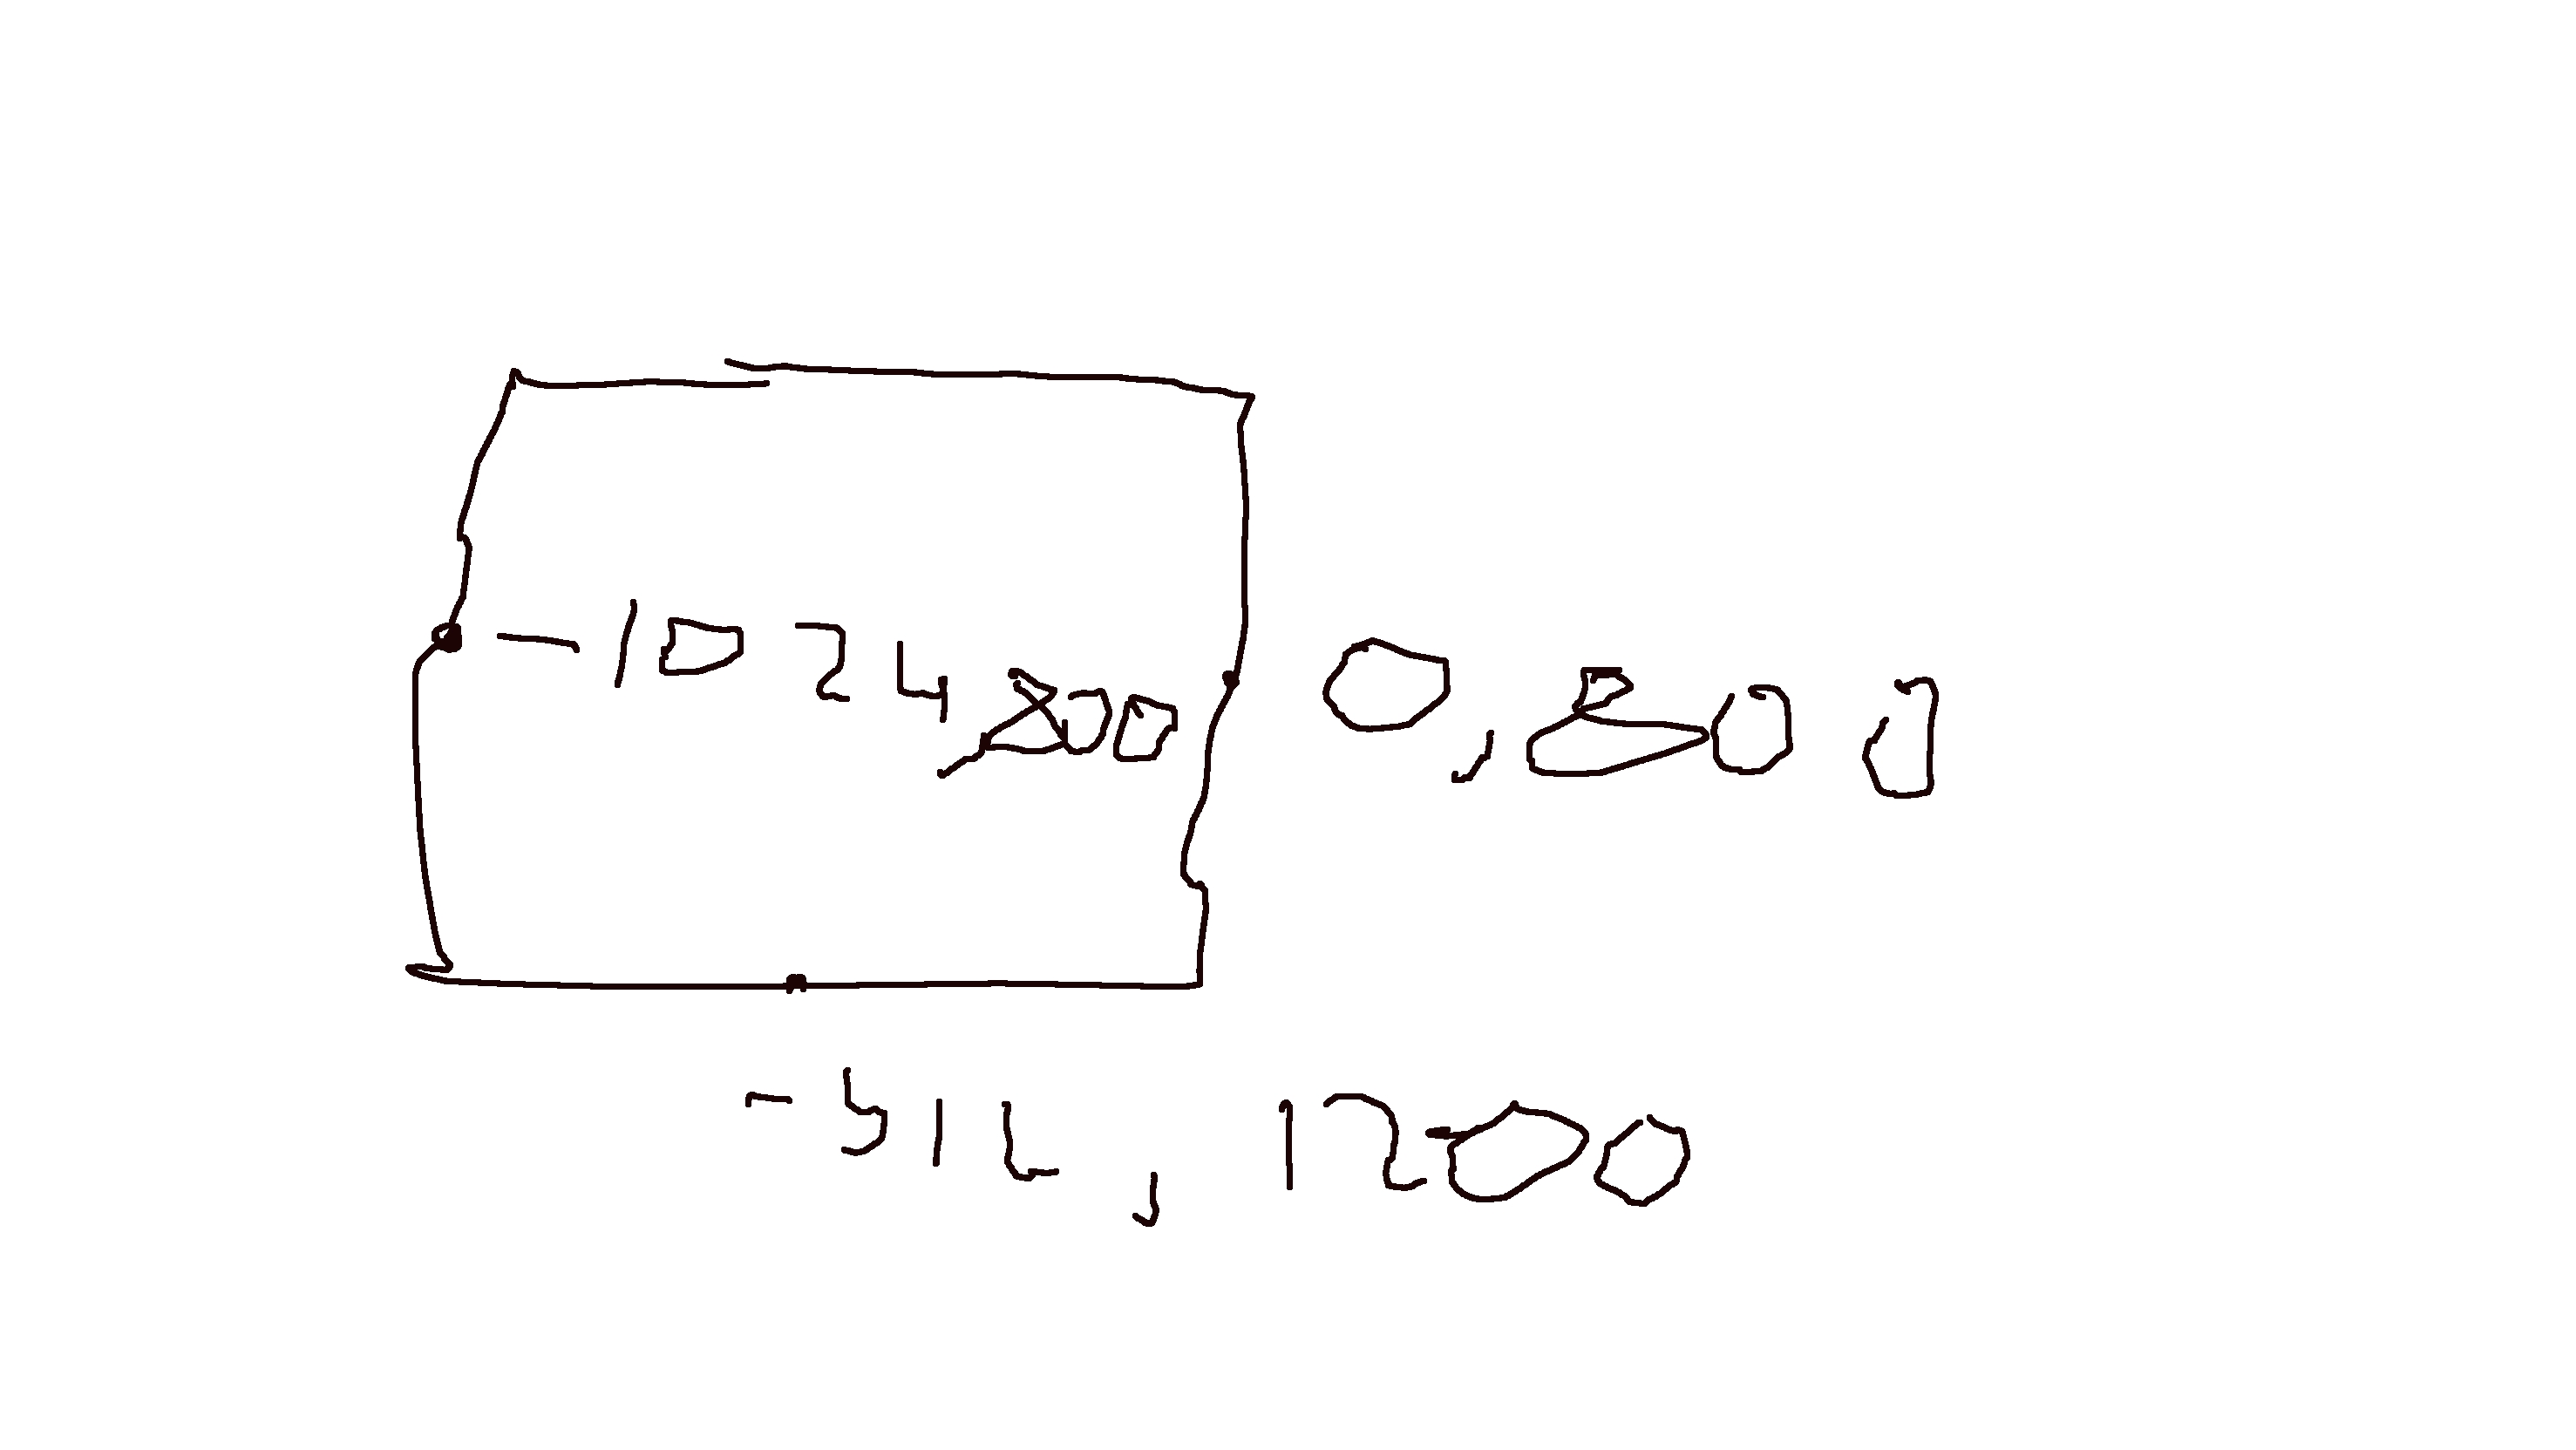 -1024,800
0,800
-512,1200